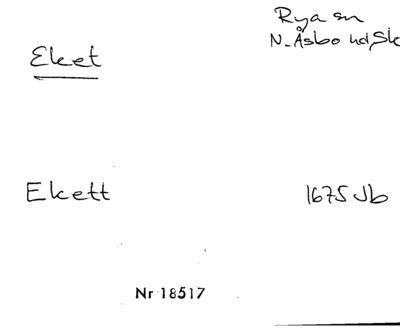 Rya sn
Eket
N. Åsbo hd, Sk
Ekett
1675 Jb
Nr 18517